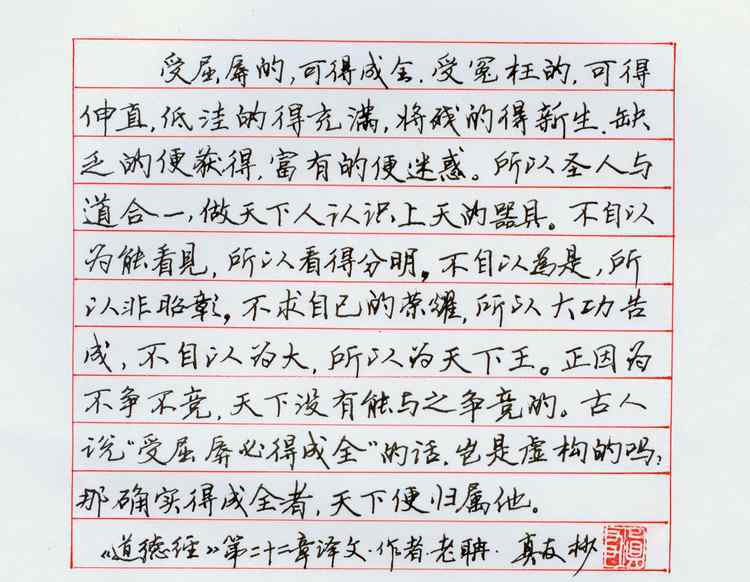 受屈辱的,可得成全.受冤枉的,可得
伸直,低洼的得充满,将残的得新生.缺
乏的便获得,富有的便迷惑。所以圣人与
道合一,做天下人认识上天的器具。不自以
为能看见,所以看得分明。不自以為是,所
以非昭彰。不求自己的荣耀,所以大功告
成,不自以为大,所以为天下王。正因为
不争不竞,天下没有能与之争竞的。古人
说“受屈辱必得成全”的话.岂是虚构的吗?
那确实得成全者,天下便归属他。
《道德经》第二十二章译文·作者·老聃·真友抄